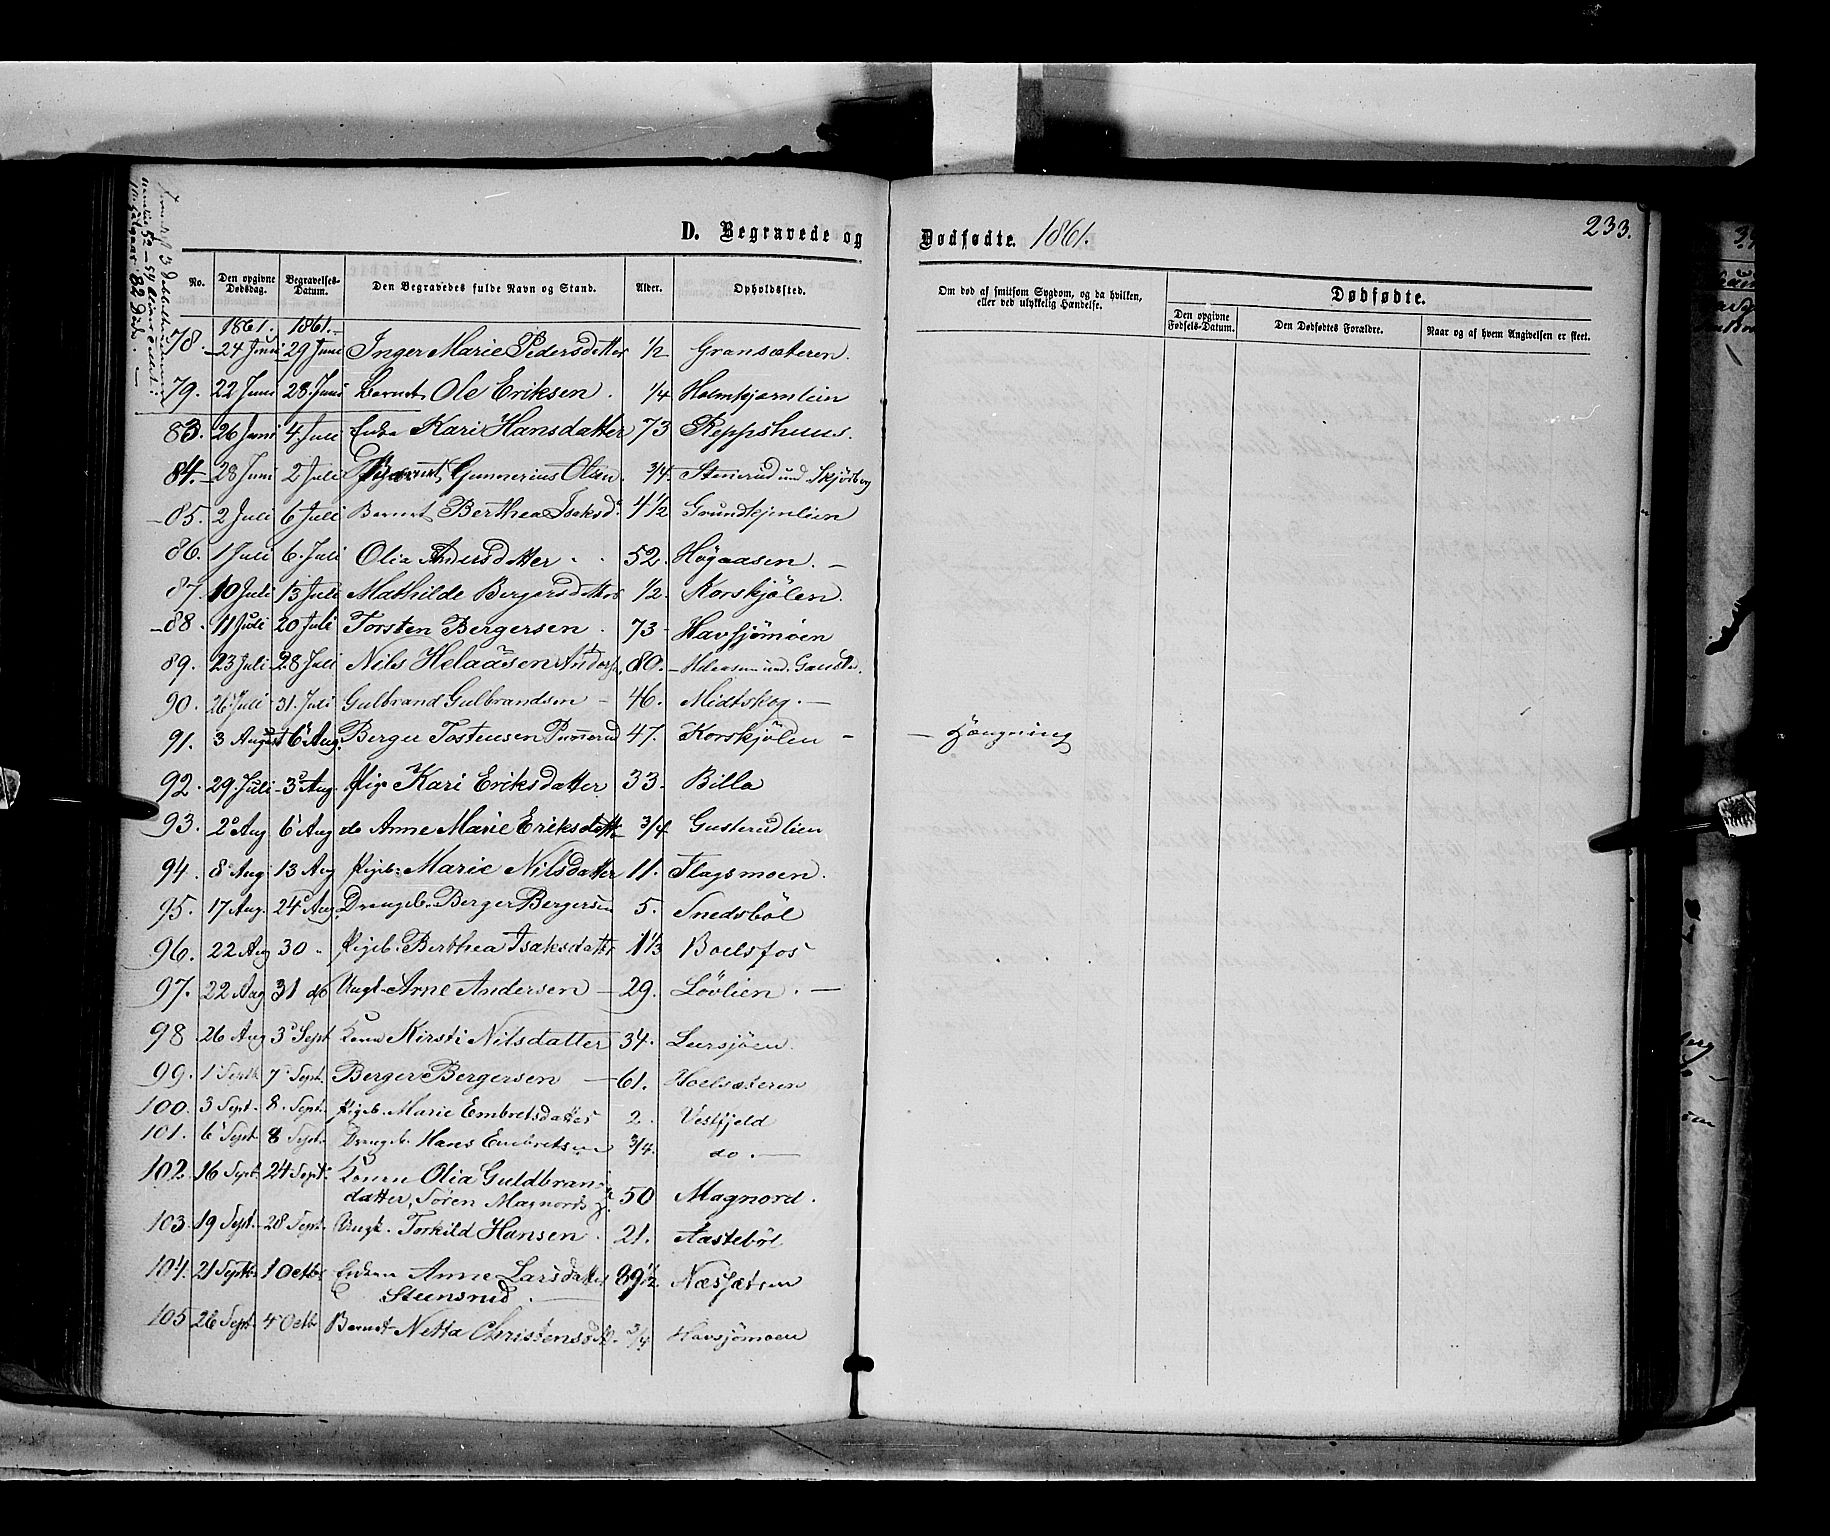 D. Begravede og
Dødfødte. 1861.
233.
No. Den opgivne Dødsdag. Begravelses-Datum. Den Begravedes fulde Navn og Stand. Alder. Opholdssted.
Om død af smitsom Sygdom, og da hvilken, eller ved ulykkelig Hændelse.
Dødfødte.
Den opgivne Fødsels-Datum. Den Dødfødtes Forældre. Naar og af hvem Angivelsen er skeet.
1861. 1861.
78. 24 Juni 29 Juni Inger Marie Pedersdatter 1/2 Gransæteren.
79. 22 Juni 28 Juni Barnet Ole Eriksen. 1/4 Holmkjærnlien
83. 26 Juni 4 Juli Enke Kari Hansdatter 73 Reppshuus.
84. 28 Juni 2 Juli Barnet Gunnerius Olsen. 3/4. Stenerud und Skjørberg
85. 2 Juli 6 Juli Barnet Berthea Isaksd. 4 1/2 Grundtjenlien
86. 1 Juli 6. Juli Olia Andersdatter. 52. Høgaasen.
87. 10 Juli 13 Juli Mathilde Bergersdatter 1/2. Korskjølen.
88. 11 Juli 20 Juli Torsten Bergersen. 73 Havsjømoen
89. 23 Juli 28 Juli Nils Helaasen 80.
90. 26 Juli 31. Juli Gulbrand Gulbrandsen 46. Midtskog.
91. 3 August 6 Aug. Berger Tostensen 47. Korskjölen - Hængning
92. 29. Juli 3 Aug. Pige Kari Eriksdatter 33. Billa
93. 2 Aug 6 Aug do Anne Marie Eriksdatt 3/4 Gusterudlien
94. 8 Aug 13 Aug Pigeb. Marie Nilsdatter 11. Flagsmoen.
95. 17 Aug. 24 Aug. Drengeb. Berger Bergersen 5. Snedsböl
96. 22 Aug 30 " Pigeb. Berthea Isaksdatter 1 1/3 Boelsfos
97. 22 Aug 31 do Ungk. Arne Andersen 29. Lövlien.
98 26 Aug 3 Sept Kone Kirsti Nilsdatter 34. Leirsjöen.
99. 1 Sept 7 Sept. Berger Bergersen 61. Hoelsæteren
100. 3 Sept. 8. Sept. Pigeb. Marie Embretsdatter 2. Vestfjeld
101. 6 Sept 8 Sept. Drengeb. Hans Embretsen 3/4. do.
102. 16 Sept. 24 Sept. Konen Olia Guldbrans-
datter, Sören Magnords 50 Magnord.
103. 19 Sept. 28 Sept. Ungk. Torkild Hansen. 21. Aastebøl
104. 21 Sept. 1 Octbr Enken Anne Larsdatter 89 1/2. Næssætren
Steensrud.
105 26 Sept. 4 Octb Barnet Netta Christensd. 3/4 Havsjömoen